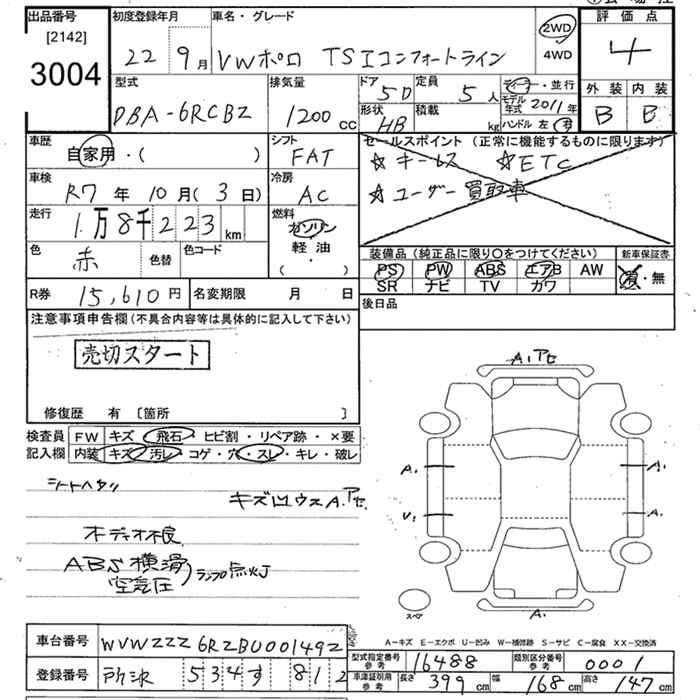 出品番号 初度登録年月 車名・グレード 評価点
[2142]
3004
22 9月 VWポロ TSIコンフォートライン 2WD 4WD 4
型式 排気量 ドア 定員 ディーラー・並行 外装 内装
DBA-6RCBZ 1200cc 5D 5人 モデル年式 2011年 B B
形状 積載 ハンドル 左 右
HB kg
車歴 シフト セールスポイント (正常に機能するものに限ります)
自家用・( ) FAT ☆キーレス ☆ETC
車検 冷房 ☆ユーザー買取車
R7年 10月(3日) AC
走行 燃料
1万8千223km ガソリン
軽油
( )
色 色替 色コード
赤
装備品(純正品に限り○をつけてください) 新車保証書
PS PW ABS エアB AW 有・無
SR ナビ TV カワ
R券 15,610円 名変期限 月 日 後日品
注意事項申告欄(不具合内容等は具体的に記入して下さい)
売切スタート
修復歴 有 [箇所 ]
検査員 FW キズ・飛石・ヒビ割・リペア跡・×要
記入欄 内装 キズ・汚レ・コゲ・穴・スレ・キレ・破レ
シートヘタリ キズ凹ウスA.アセ
オーディオ不良
ABS横滑
空気圧
ランプ点灯
A.アセ
A. A.
U. A.
スペア A.
A-キズ E-エクボ U-凹み W-補修跡 S-サビ C-腐食 XX-交換済
車台番号 WVWZZZ6RZBU001492
型式指定番号 参考 16488 類別区分番号 参考 0001
登録番号 所沢 534す 812
車庫証明用 参考 長さ 399cm 幅 168cm 高さ 147cm